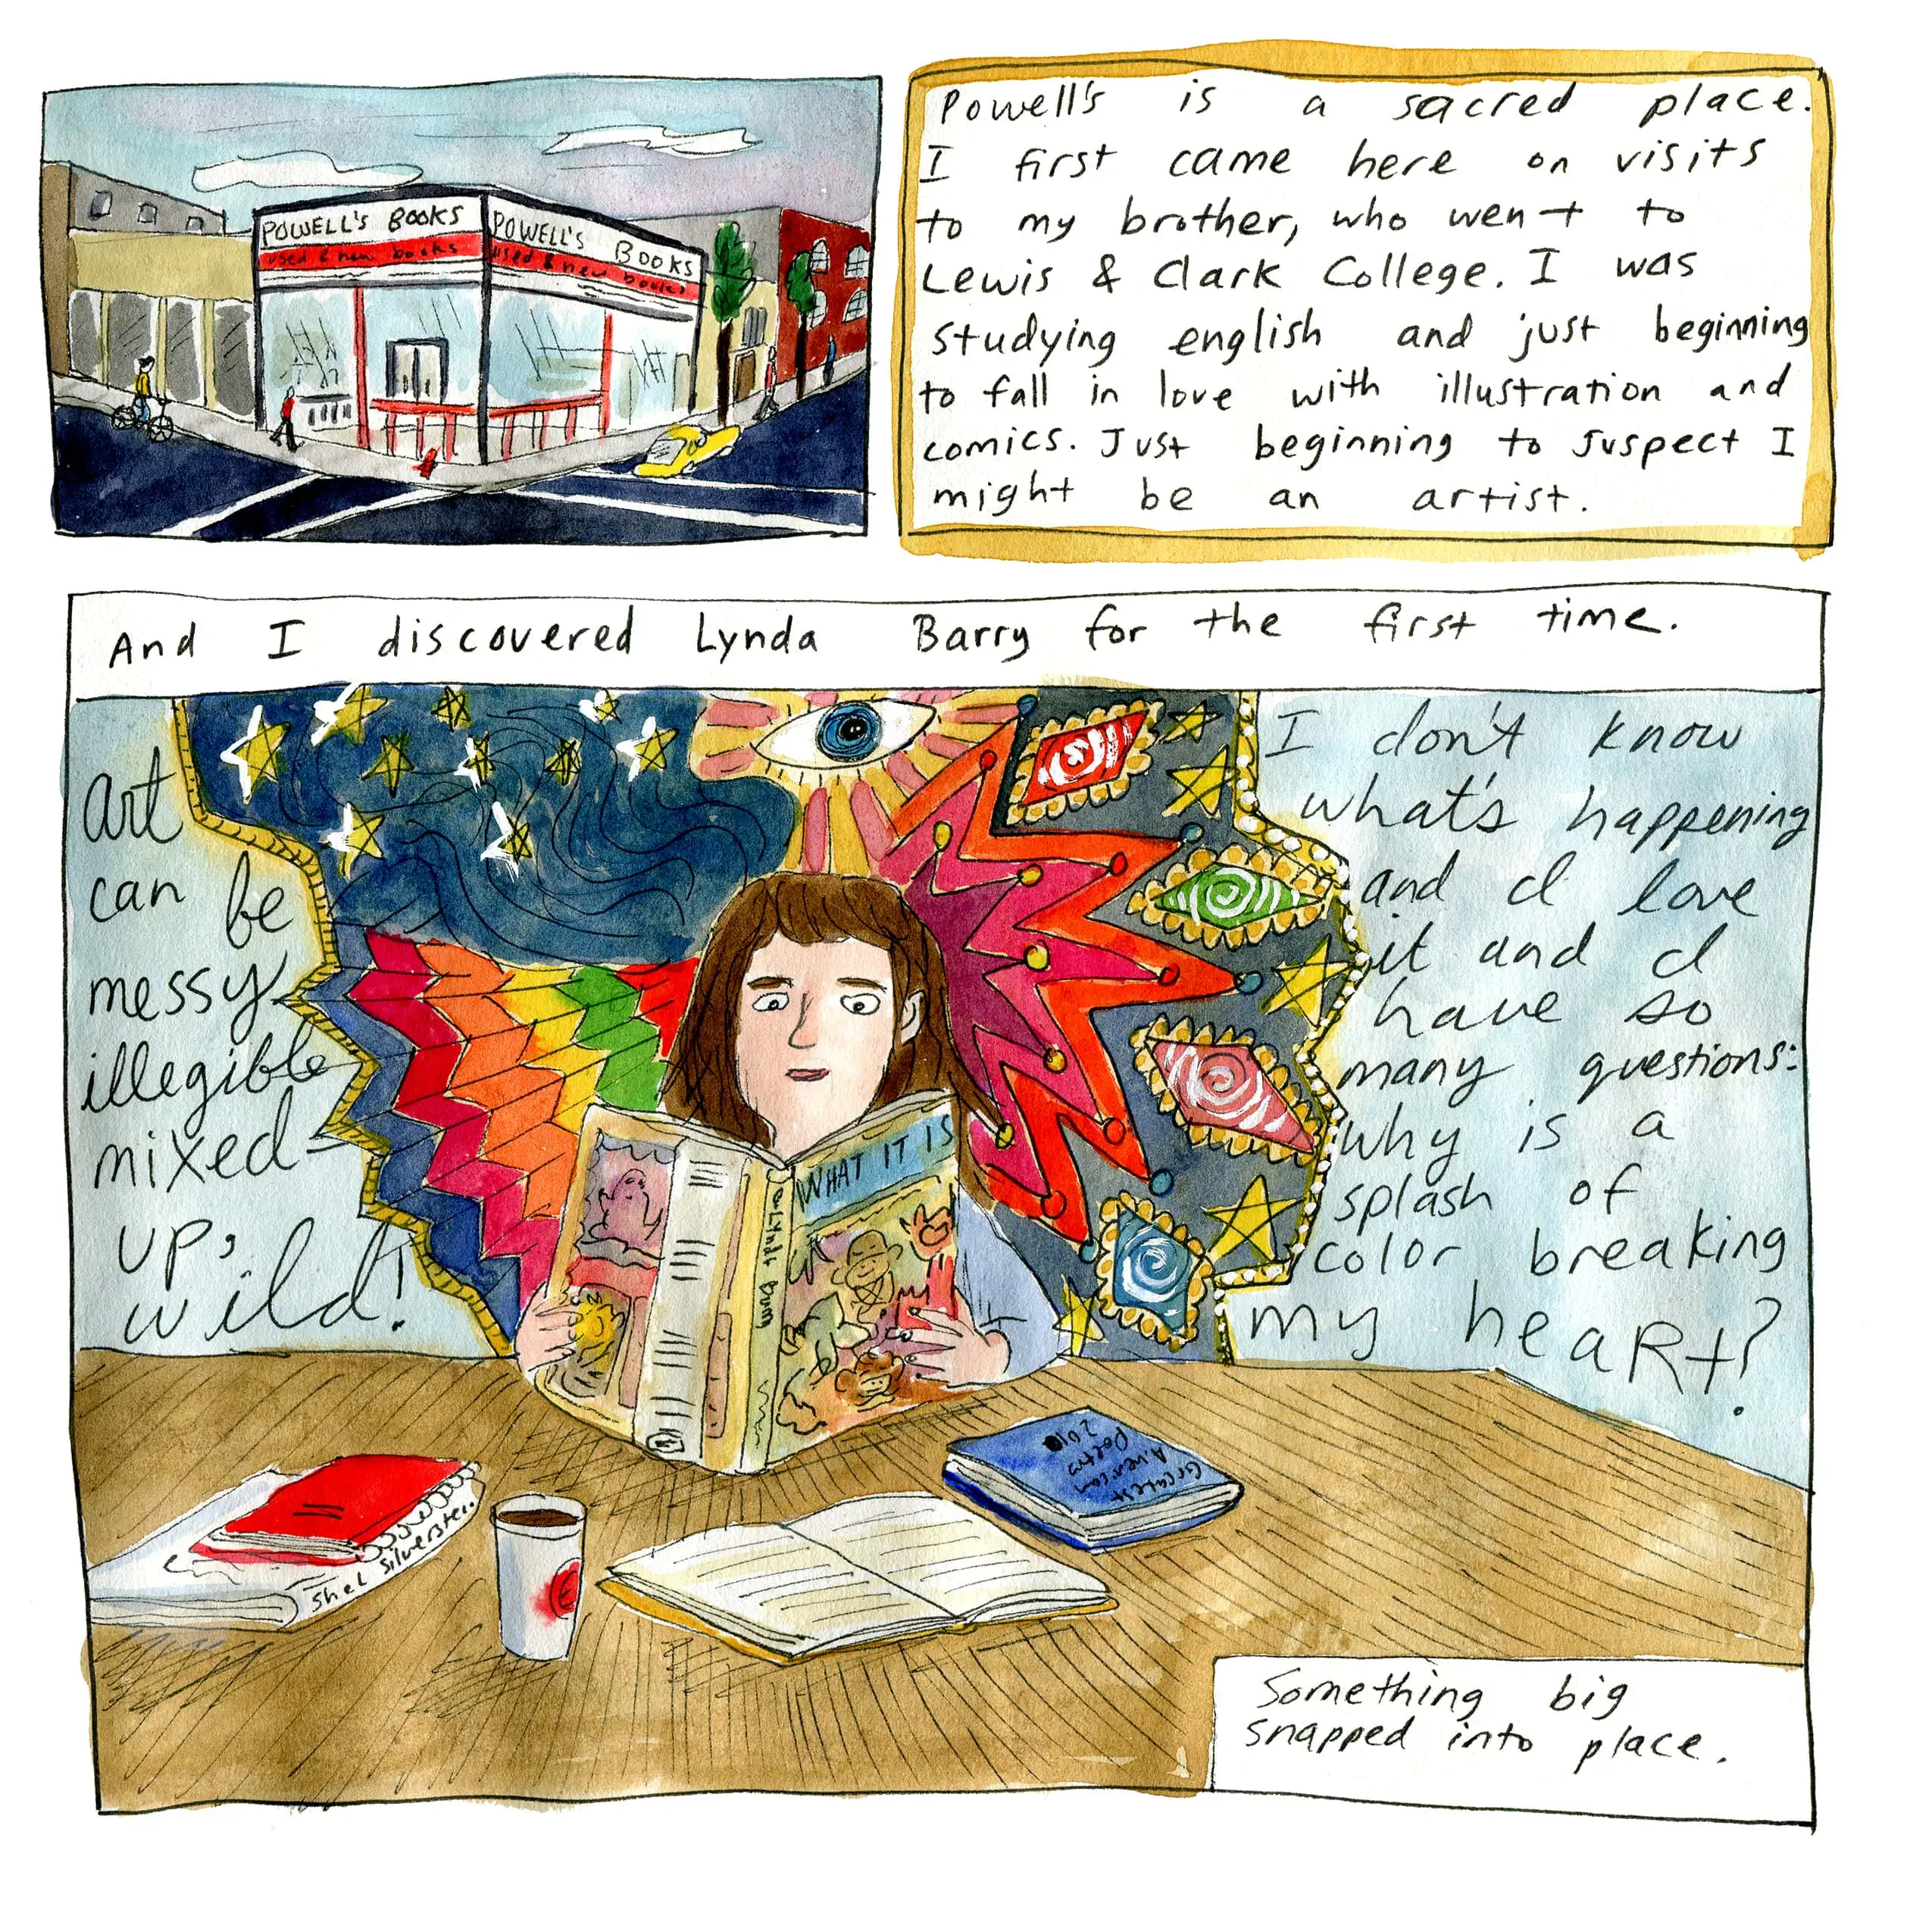 POWELL'S BOOKS
used & new books
POWELL'S BOOKS
used & new books
Powell's is a sacred place.
I first came here on visits
to my brother, who went to
Lewis & Clark College. I was
studying english and just beginning
to fall in love with illustration and
comics. Just beginning to suspect I
might be an artist.
And I discovered Lynda Barry for the first time.
art
can be
messy
illegible
mixed-
up,
wild!
I don't know
what's happening
and I love
it and I
have so
many questions:
why is a
splash of
color breaking
my heARt?
WHAT IT IS
Shel Silverstein
American
Poetry
Something big
snapped into place.